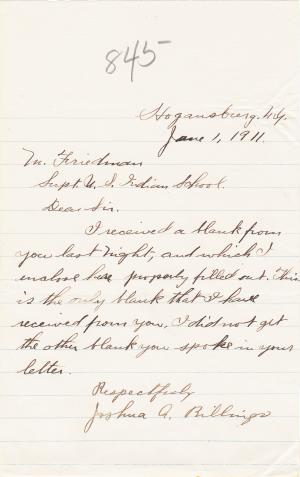 845
Hogansburg, N.Y.
June 1, 1911.
M. Friedman
Supt. U. S. Indian School.
Dear Sir.
I received a blank from
you last night, and which I
inclose here properly filled out. This
is the only blank that I have
received from you, I did not get
the other blank you spoke in your
letter.
Respectfully
Joshua A. Billings